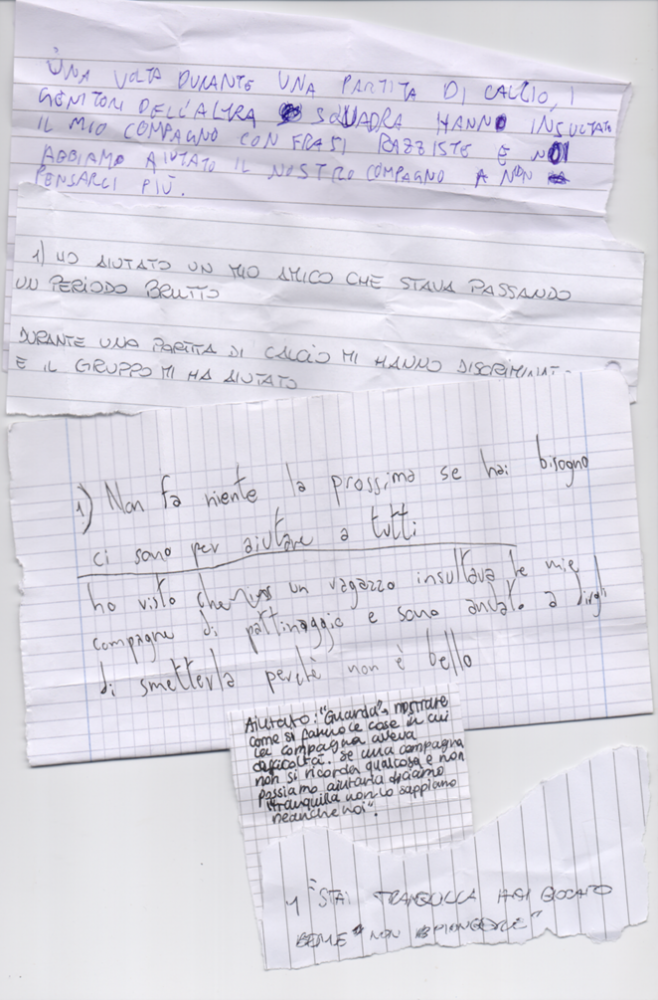 UNA VOLTA DURANTE UNA PARTITA DI CALCIO, I
GENITORI DELL'ALTRA SQUADRA HANNO INSULTATO
IL MIO COMPAGNO CON FRASI RAZZISTE E NOI
ABBIAMO AIUTATO IL NOSTRO COMPAGNO A NON
PENSARCI PIÙ.
1) HO AIUTATO UN MIO AMICO CHE STAVA PASSANDO
UN PERIODO BRUTTO
DURANTE UNA PARTITA DI CALCIO MI HANNO DISCRIMINAT
E IL GRUPPO MI HA AIUTATO
1) Non fa niente la prossima se hai bisogno
ci sono per aiutare a tutti
ho visto che un ragazzo insultava le mie
compagne di pattinaggio e sono andato a dirgli
di smetterla perché non è bello
Aiutato: "Guarda" → mostrare
come si fanno le cose in cui
la compagna aveva
difficoltà. Se una compagna
non si ricorda qualcosa e non
possiamo aiutarla diciamo
"tranquilla non lo sappiamo
neanche noi".
1 "STAI TRANQUILLA HAI GIOCATO
BENE" "NON PIANGERE"